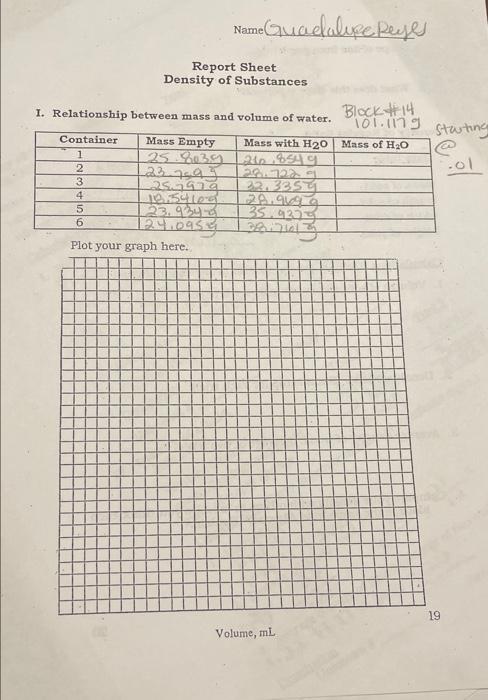 Name Guadalupe Reyes
Report Sheet
Density of Substances
I. Relationship between mass and volume of water.
Block #14
101.117 g
Starting
@
.01
Container Mass Empty Mass with H2O Mass of H2O
1 25.803g 26.854 g
2 28.722 g
3 25.797g 32.335g
4 18.5410g 28.969g
5 23.934g 35.937g
6 24.095g 38.761g
Plot your graph here.
19
Volume, mL